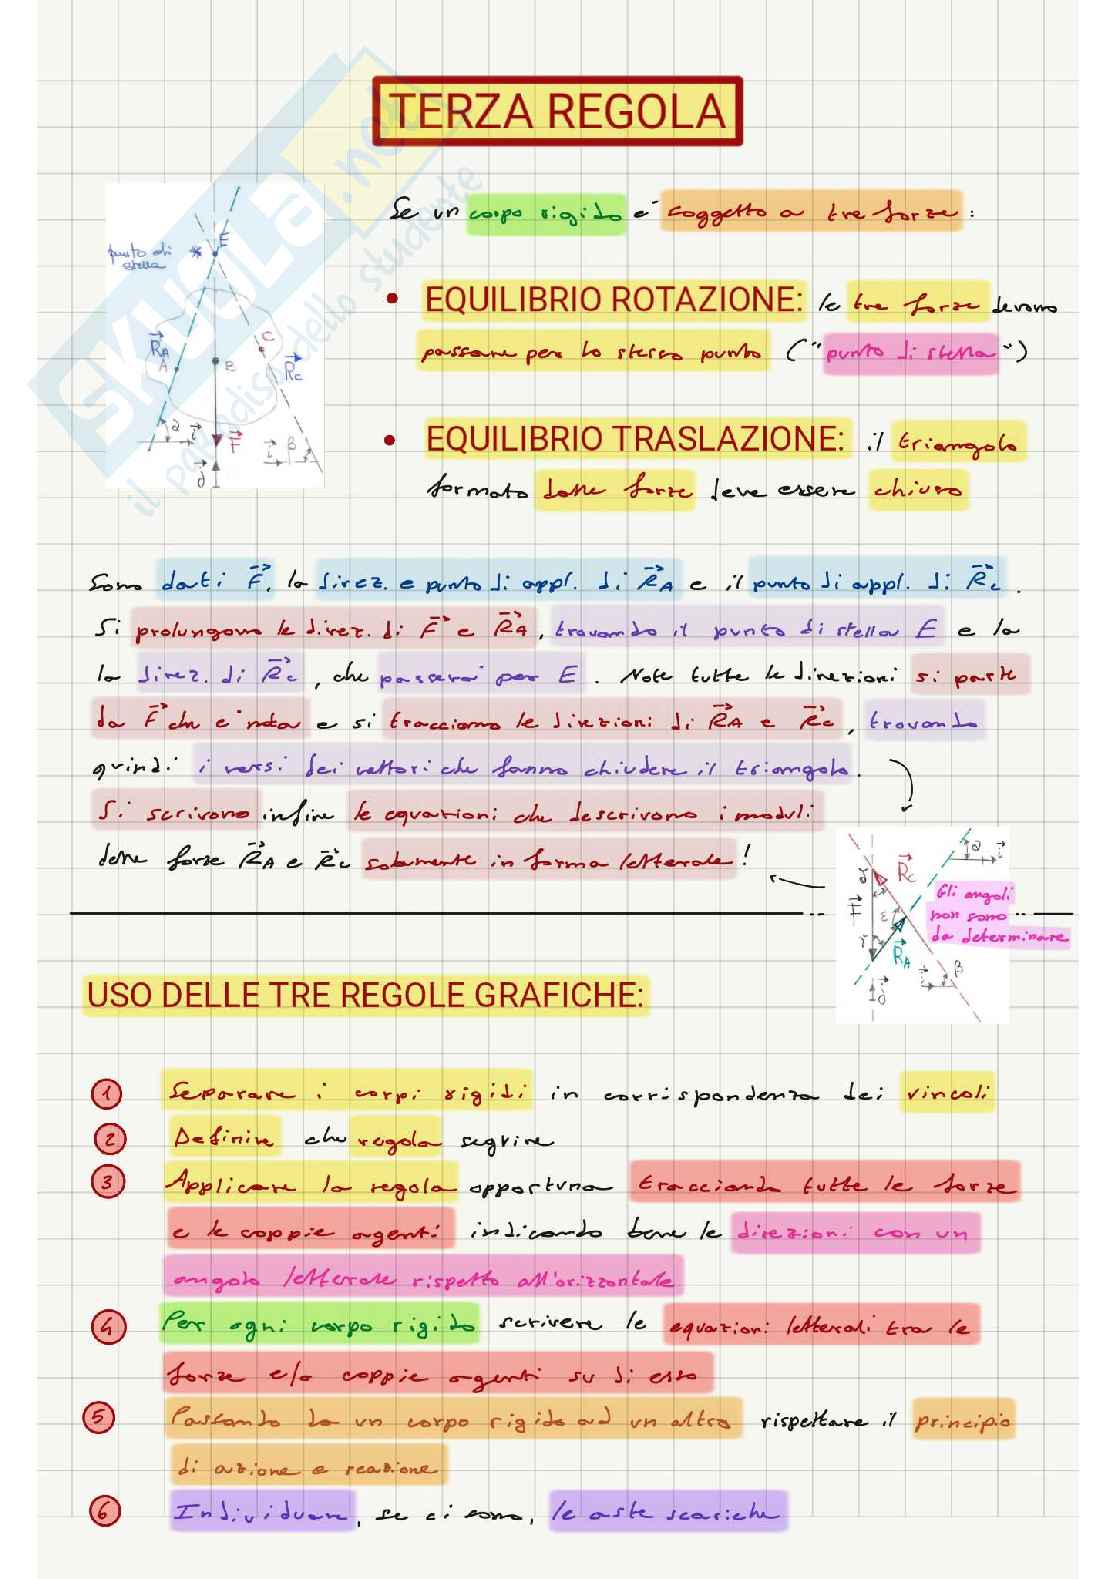 TERZA REGOLA
SKUOLA.net
il paradiso dello studente
Se un corpo rigido e' soggetto a tre forze:
• EQUILIBRIO ROTAZIONE: le tre forze devono
passare per lo stesso punto ("punto di stella")
• EQUILIBRIO TRASLAZIONE: il triangolo
formato dalle forze deve essere chiuso
punto di
stella
* E
C
R⃗A A
B
R⃗C
a i⃗
F⃗
i⃗ β
j⃗
Sono dati F⃗, la direz. e punto di appl. di R⃗A e il punto di appl. di R⃗C.
Si prolungano le direz. di F⃗ e R⃗A, trovando il punto di stella E e la
la direz. di R⃗C, che passerai per E. Note tutte le direzioni si parte
da F⃗ che e' nota e si tracciano le direzioni di R⃗A e R⃗C, trovando
quindi i versi dei vettori che fanno chiudere il triangolo.
Si scrivono infine le equazioni che descrivono i moduli
delle forze R⃗A e R⃗C solamente in forma letterale!
a i⃗
R⃗C
F⃗
ε
R⃗A
β
i⃗
j⃗
Gli angoli
non sono
da determinare
USO DELLE TRE REGOLE GRAFICHE:
1 Separare i corpi rigidi in corrispondenza dei vincoli
2 Definire che regola seguire
3 Applicare la regola opportuna tracciando tutte le forze
e le coppie agenti indicando bene le direzioni con un
angolo letterale rispetto all'orizzontale
4 Per ogni corpo rigido scrivere le equazioni letterali tra le
forze e/o coppie agenti su di esso
5 Passando da un corpo rigido ad un altro rispettare il principio
di azione e reazione
6 Individuare, se ci sono, le aste scariche